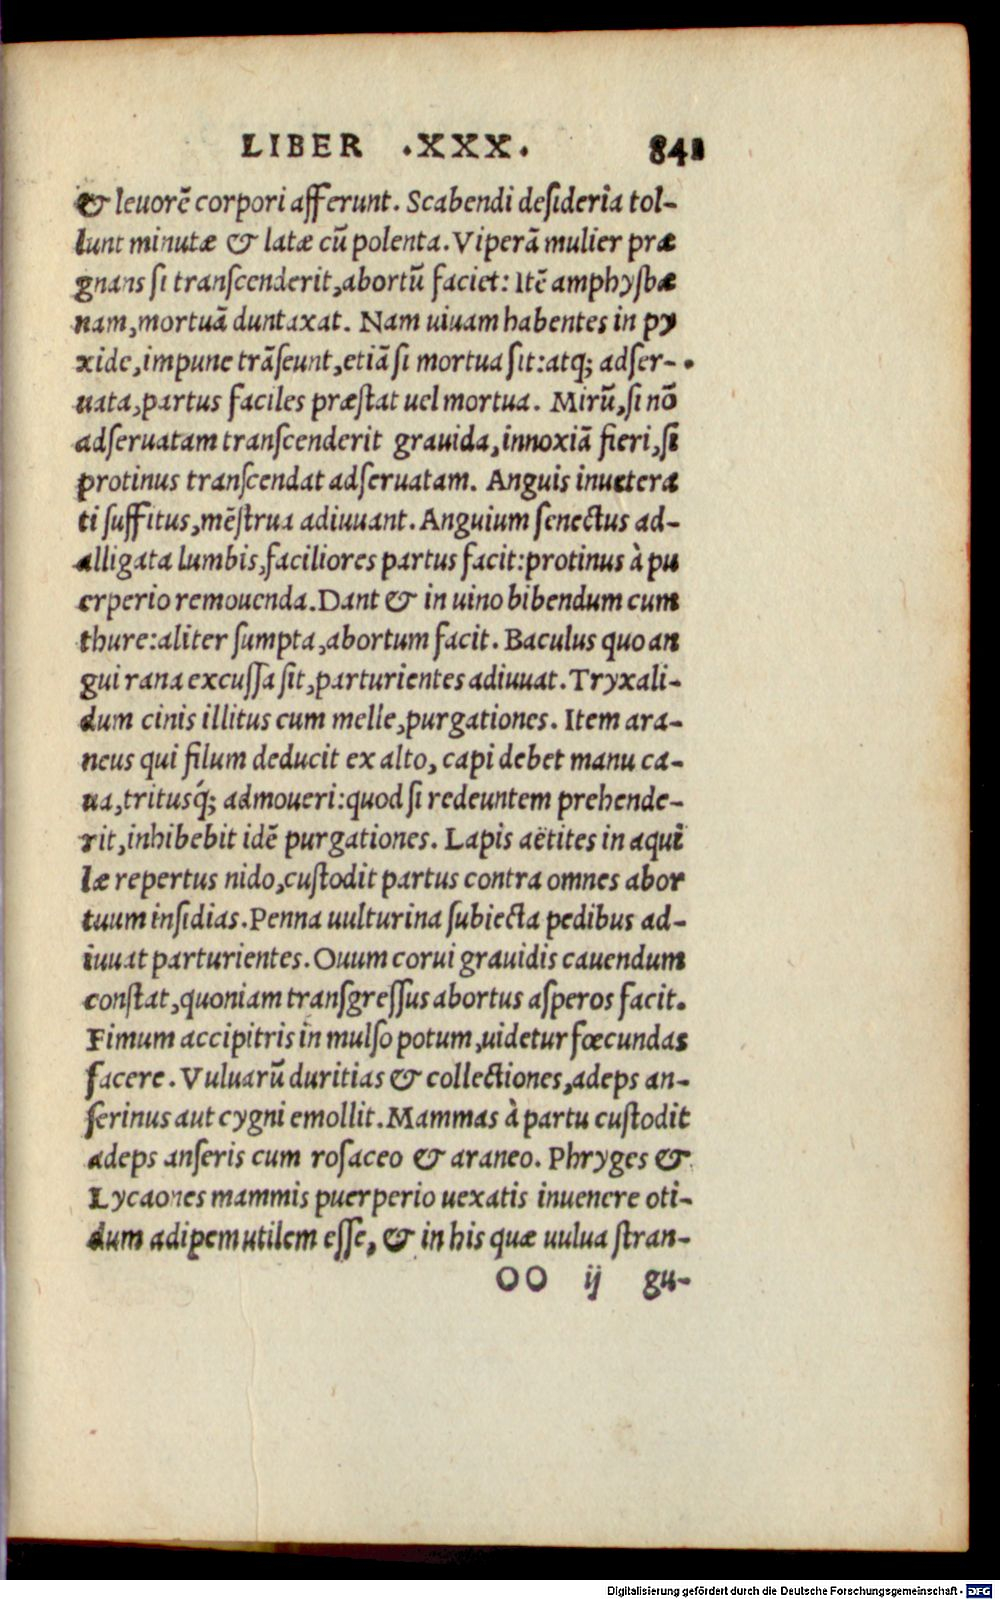 LIBER .XXX. 841
& leuorē corpori afferunt. Scabendi desideria tol-
lunt minutæ & latæ cū polenta. Viperā mulier præ
gnans si transcenderit, abortū faciet: Itē amphysbæ
nam, mortuā duntaxat. Nam uiuam habentes in py
xide, impune trāseunt, etiā si mortua sit: atq; adser-
uata, partus faciles præstat uel mortua. Mirū, si nō
adseruatam transcenderit grauida, innoxiā fieri, si
protinus transcendat adseruatam. Anguis inuetera
ti suffitus, mēstrua adiuuant. Anguium senectus ad-
alligata lumbis, faciliores partus facit: protinus à pu
erperio remouenda. Dant & in uino bibendum cum
thure: aliter sumpta, abortum facit. Baculus quo an
gui rana excussa sit, parturientes adiuuat. Tryxali-
dum cinis illitus cum melle, purgationes. Item ara-
neus qui filum deducit ex alto, capi debet manu ca-
ua, tritusq́; admoueri: quod si redeuntem prehende-
rit, inhibebit idē purgationes. Lapis aëtites in aqui
læ repertus nido, custodit partus contra omnes abor
tuum insidias. Penna uulturina subiecta pedibus ad-
iuuat parturientes. Ouum corui grauidis cauendum
constat, quoniam transgressus abortus asperos facit.
Fimum accipitris in mulso potum, uidetur fœcundas
facere. Vuluarū duritias & collectiones, adeps an-
serinus aut cygni emollit. Mammas à partu custodit
adeps anseris cum rosaceo & araneo. Phryges &
Lycaones mammis puerperio uexatis inuenere oti-
dum adipem utilem esse, & in his quæ uulua stran-
OO ij gu-
Digitalisierung gefördert durch die Deutsche Forschungsgemeinschaft - DFG